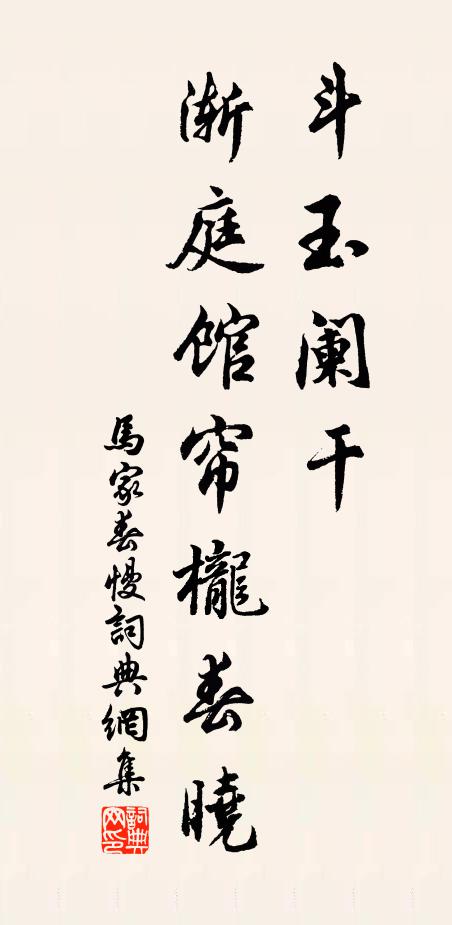 斗玉阑干
渐庭馆帘櫳春曉
馬家春慢詞典網集
詞典网印